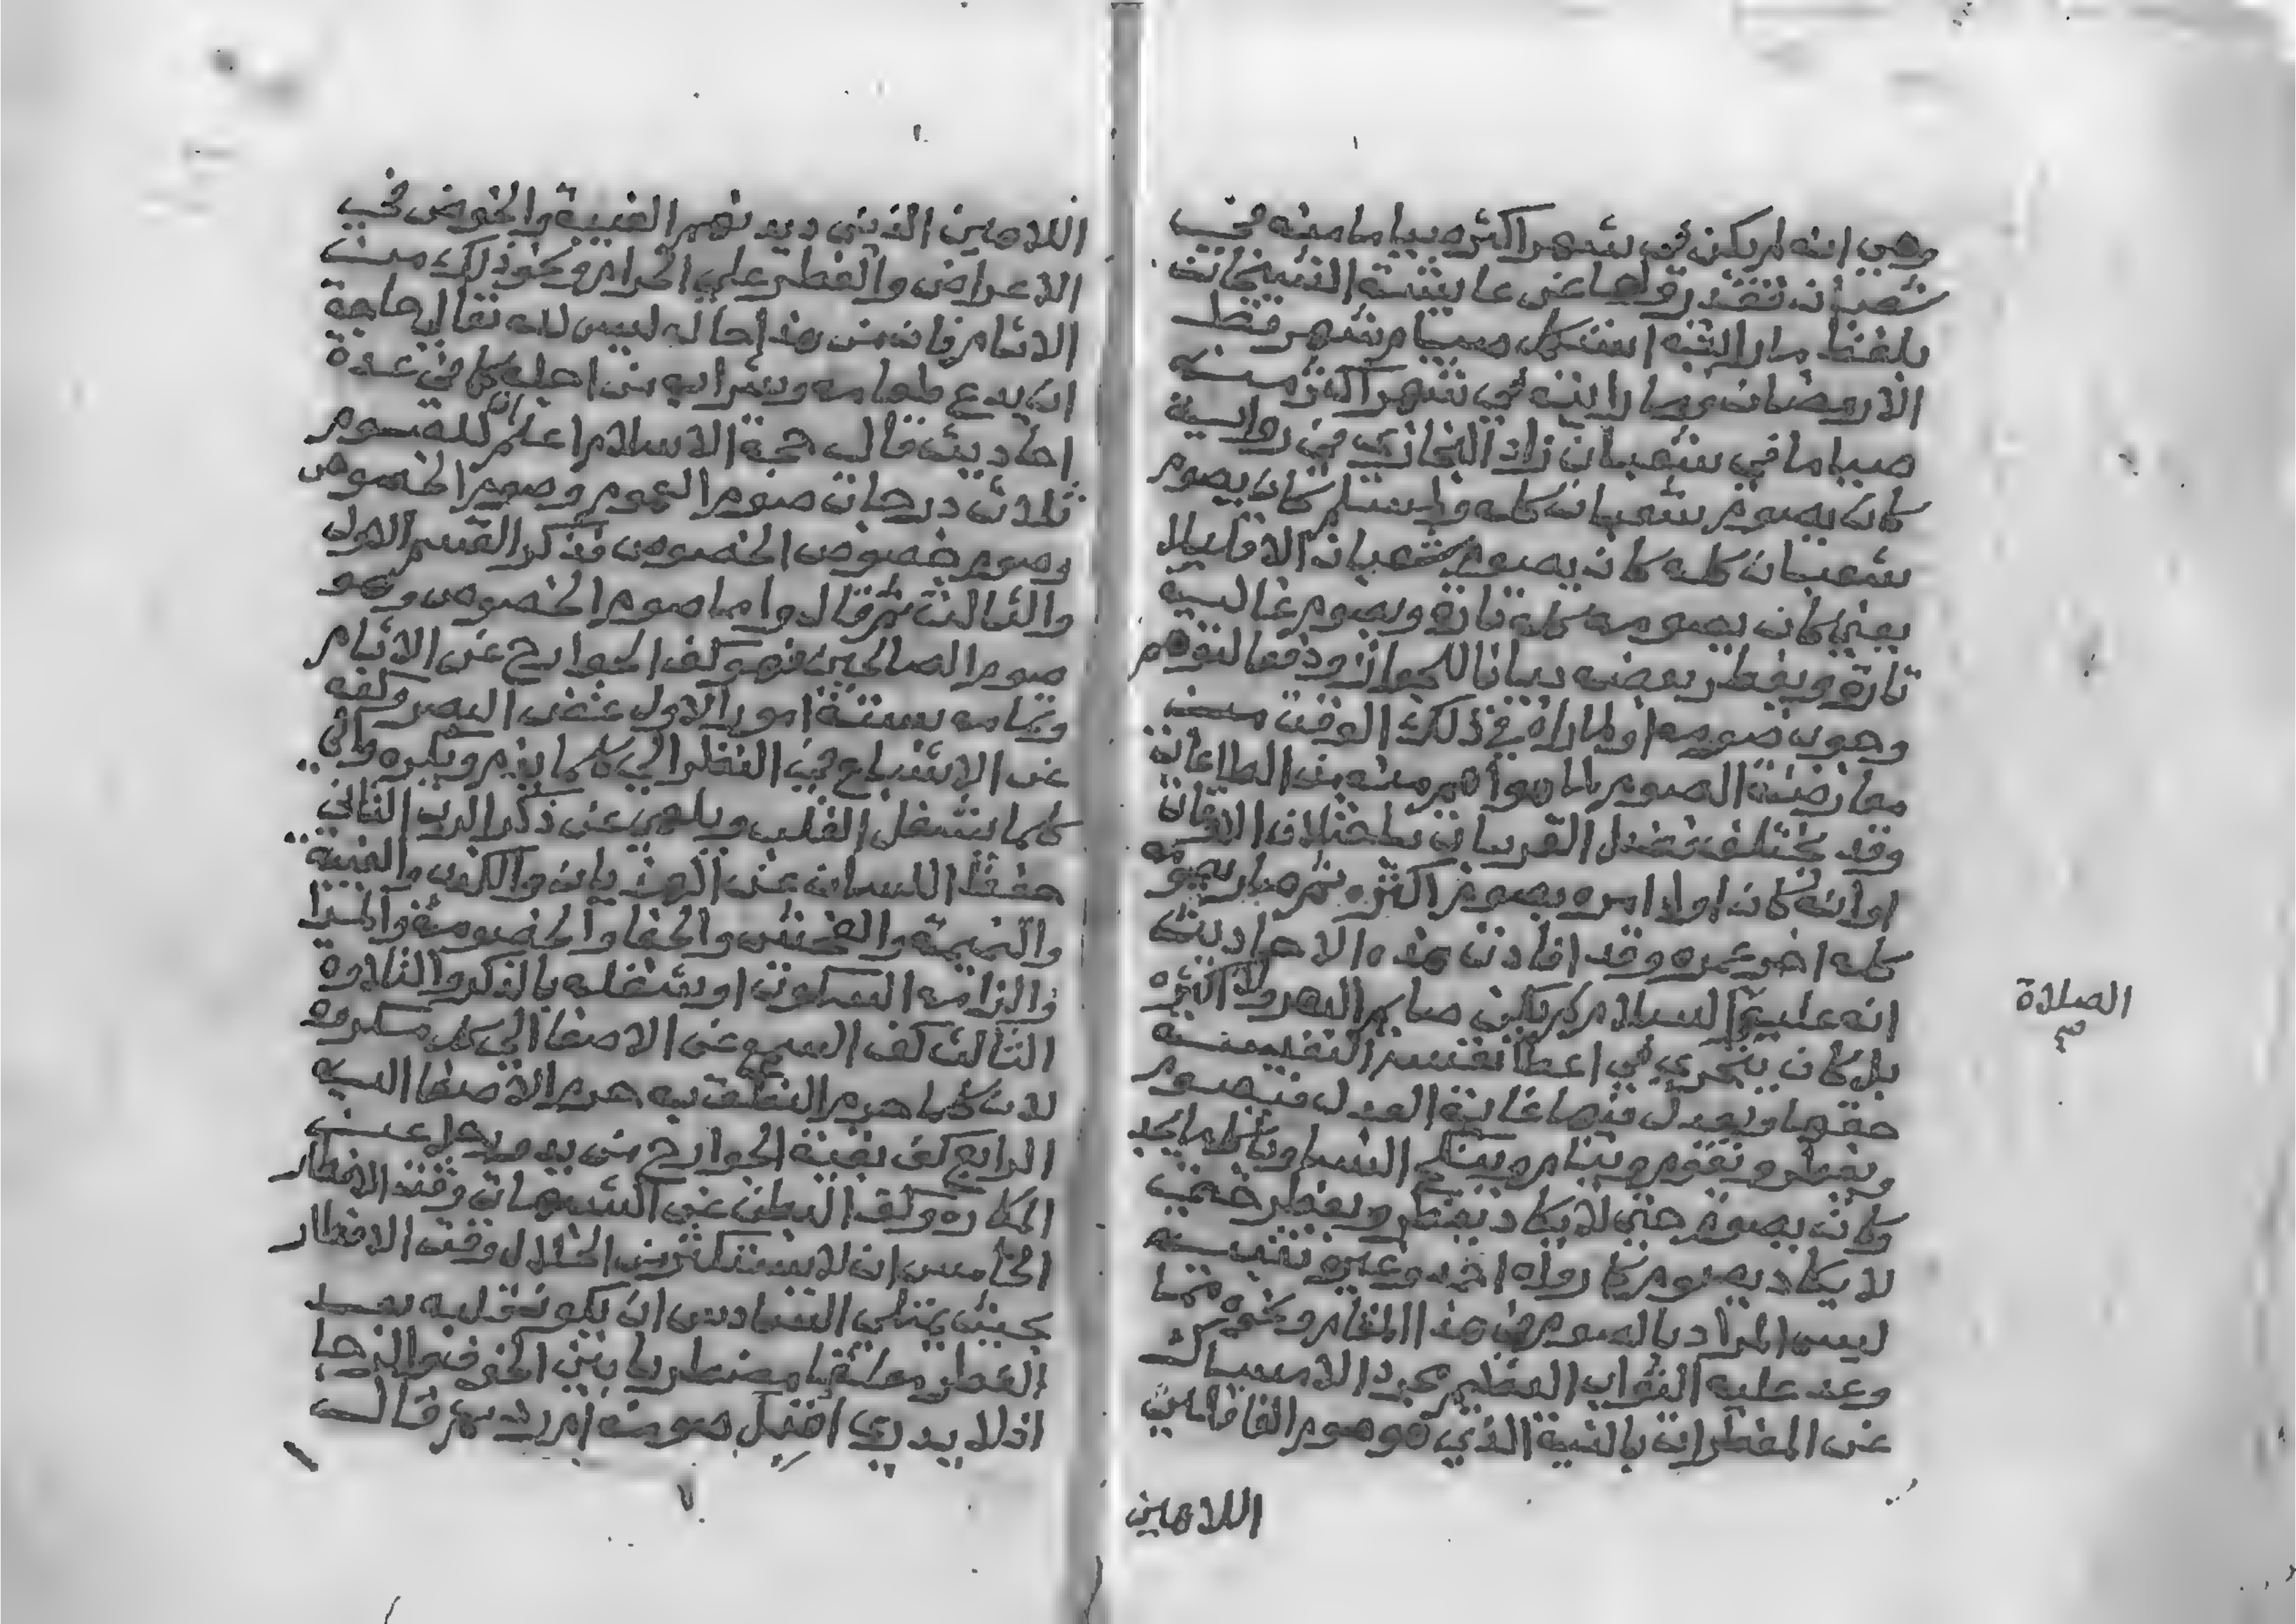 وهي انه لم يكن في شهر اكثره صياما منه في
شعبان فقد رواها عن عايشة الشيخان
بلفظ ما رايته استكمل صيام شهر قط
الا رمضان وما رايته في شهر اكثر منه
صياما في شعبان زاد البخاري في رواية
كان يصوم شعبان كله ولمسلم كان يصوم
شعبان كله كان يصوم شعبان الا قليلا
يعني كان يصومه كله تارة ويصوم غالبه
تارة ويفطر بعضه بيانا للجواز ودفعا لتوهم
وجوب صومه او لما راه في ذلك الوقت من
معارضة الصوم بما هو اهم منه من الطاعات
وقد يختلف فضل القربات باختلاف الاوقات
او انه كان اول امره يصوم اكثره ثم صار يصوم
كله اخر عمره وقد افادت هذه الاحاديث
انه عليه السلام لم يكن صايم الدهر ولا اكثره
بل كان يتحري في اعطا نفسه النفيسة
حقها ويعدل فيها غاية العدل فيصوم
ويفطر ويقوم وينام وينكح النسا وياكل ما يجد
وكان يصوم حتي لا يكاد يفطر ويفطر حتي
لا يكاد يصوم كما رواه احمد وغيره تنبيه
ليس المراد بالصوم في هذا المقام ونحوه مما
وعد عليه الثواب العظيم مجرد الامساك
عن المفطرات بالنية الذي هو صوم الغافلين
اللاهين
الصلاة
اللاهين الذين ديدنهم الغيبة والخوض في
الاعراض والفطر علي الحرام ونحو ذلك من
الاثام فان من هذا حاله ليس لله تعالي حاجة
ان يدع طعامه وشرابه من اجله كما في عدة
احاديث قال حجة الاسلام اعلم ان للصوم
ثلاث درجات صوم العموم وصوم الخصوص
وصوم خصوص الخصوص فذكر القسم الاول
والثالث ثم قال واما صوم الخصوص وهو
صوم الصالحين فهو كف الجوارح عن الاثام
وتمامه بستة امور الاول غض البصر وكفه
عن الاتساع في النظر الي كلما يذم ويكره والي
كلما يشغل القلب ويلهي عن ذكر الرب الثاني
حفظ اللسان عن الهذيان والكذب والغيبة
والنميمة والفحش والجفا والخصومة والمرا
والزامه السكوت او يشغله بالذكر والتلاوة
الثالث كف السمع عن الاصغا الي كل مكروه
لان كلما حرم النطق به حرم الاصغا اليه
الرابع كف بقية الجوارح من يد ورجل عن
المكاره وكف البطن عن الشبهات وقت الافطار
الخامس ان لا يستكثر من الحلال وقت الافطار
بحيث يمتلي السادس ان يكون قلبه بعد
الفطر معلقا مضطربا بين الخوف والرجا
اذ لا يدري اقبل صومه ام رد ثم قال